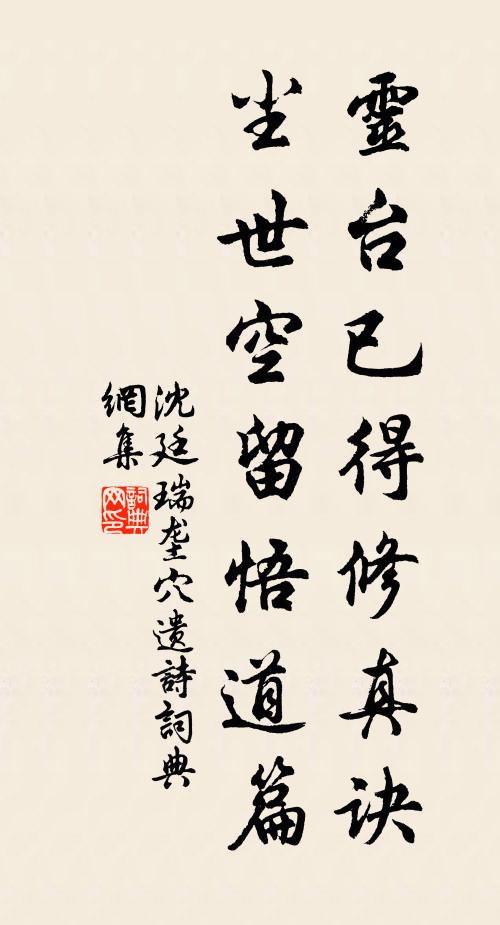 靈台已得修真訣
尘世空留悟道篇
沈廷瑞垄穴遗詩詞典
網集
詞典
网印